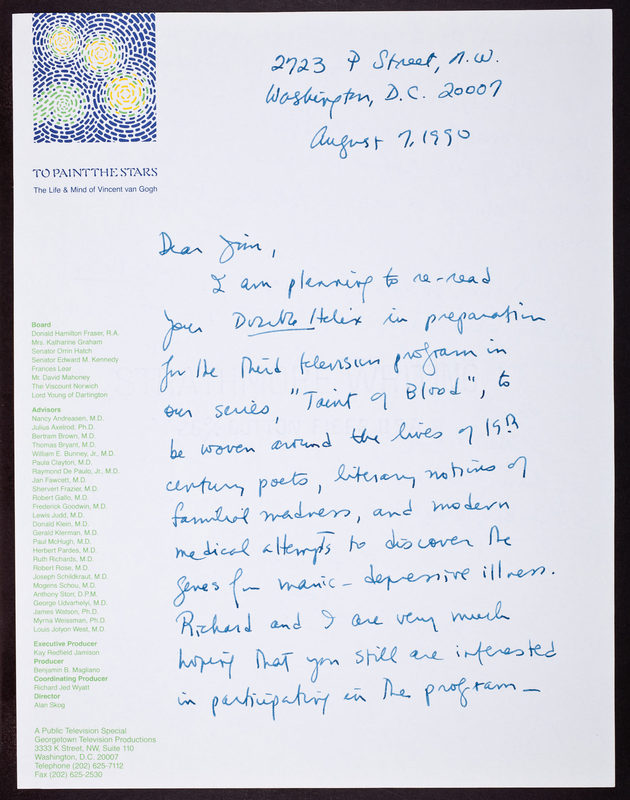 TO PAINT THE STARS
The Life & Mind of Vincent van Gogh
2723 P Street, N.W.
Washington, D.C. 20007
August 7, 1990
Dear Jim,
I am planning to re-read
your Double Helix in preparation
for the third television program in
our series, "Taint of Blood", to
be woven around the lives of 19th
century poets, literary notions of
familial madness, and modern
medical attempts to discover the
genes for manic-depressive illness.
Richard and I are very much
hoping that you still are interested
in participating in the program—
Board
Donald Hamilton Fraser, R.A.
Mrs. Katharine Graham
Senator Orrin Hatch
Senator Edward M. Kennedy
Frances Lear
Mr. David Mahoney
The Viscount Norwich
Lord Young of Dartington
Advisors
Nancy Andreasen, M.D.
Julius Axelrod, Ph.D.
Bertram Brown, M.D.
Thomas Bryant, M.D.
William E. Bunney, Jr., M.D.
Paula Clayton, M.D.
Raymond De Paulo, Jr., M.D.
Jan Fawcett, M.D.
Shervert Frazier, M.D.
Robert Gallo, M.D.
Frederick Goodwin, M.D.
Lewis Judd, M.D.
Donald Klein, M.D.
Gerald Klerman, M.D.
Paul McHugh, M.D.
Herbert Pardes, M.D.
Ruth Richards, M.D.
Robert Rose, M.D.
Joseph Schildkraut, M.D.
Mogens Schou, M.D.
Anthony Storr, D.P.M.
George Udvarhelyi, M.D.
James Watson, Ph.D.
Myrna Weissman, Ph.D.
Louis Jolyon West, M.D.
Executive Producer
Kay Redfield Jamison
Producer
Benjamin B. Magliano
Coordinating Producer
Richard Jed Wyatt
Director
Alan Skog
A Public Television Special
Georgetown Television Productions
3333 K Street, NW, Suite 110
Washington, D.C. 20007
Telephone (202) 625-7112
Fax (202) 625-2530